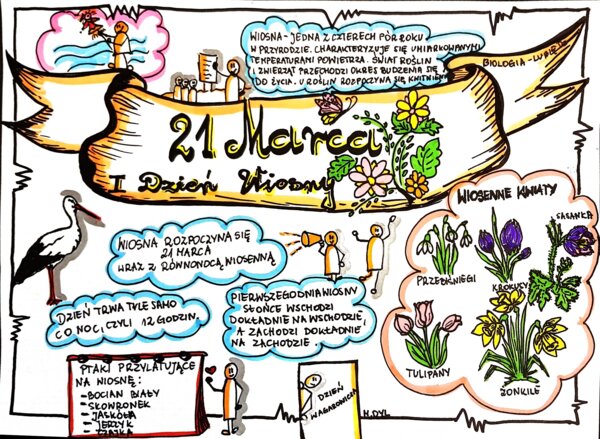 WIOSNA - JEDNA Z CZTERECH PÓR ROKU
W PRZYRODZIE. CHARAKTERYZUJE SIĘ UMIARKOWANYMI
TEMPERATURAMI POWIETRZA. ŚWIAT ROŚLIN
I ZWIERZĄT PRZECHODZI OKRES BUDZENIA SIĘ
DO ŻYCIA. U ROŚLIN ROZPOCZYNA SIĘ KWITNIENIE
BIOLOGIA -
21 Marca
I Dzień Wiosny
WIOSENNE KWIATY
SASANKA
PRZEBIŚNIEGI
KROKUSY
TULIPANY
ŻONKILE
WIOSNA ROZPOCZYNA SIĘ
21 MARCA
WRAZ Z RÓWNONOCĄ WIOSENNĄ
DZIEŃ TRWA TYLE SAMO
CO NOC, CZYLI 12 GODZIN.
PIERWSZEGO DNIA WIOSNY
SŁOŃCE WSCHODZI
DOKŁADNIE NA WSCHODZIE,
A ZACHODZI DOKŁADNIE
NA ZACHODZIE.
PTAKI PRZYLATUJĄCE
NA WIOSNĘ:
- BOCIAN BIAŁY
- SKOWRONEK
- JASKÓŁKA
- JERZYK
- CZAJKA
DZIEŃ
WAGAROWICZA
M.DYL